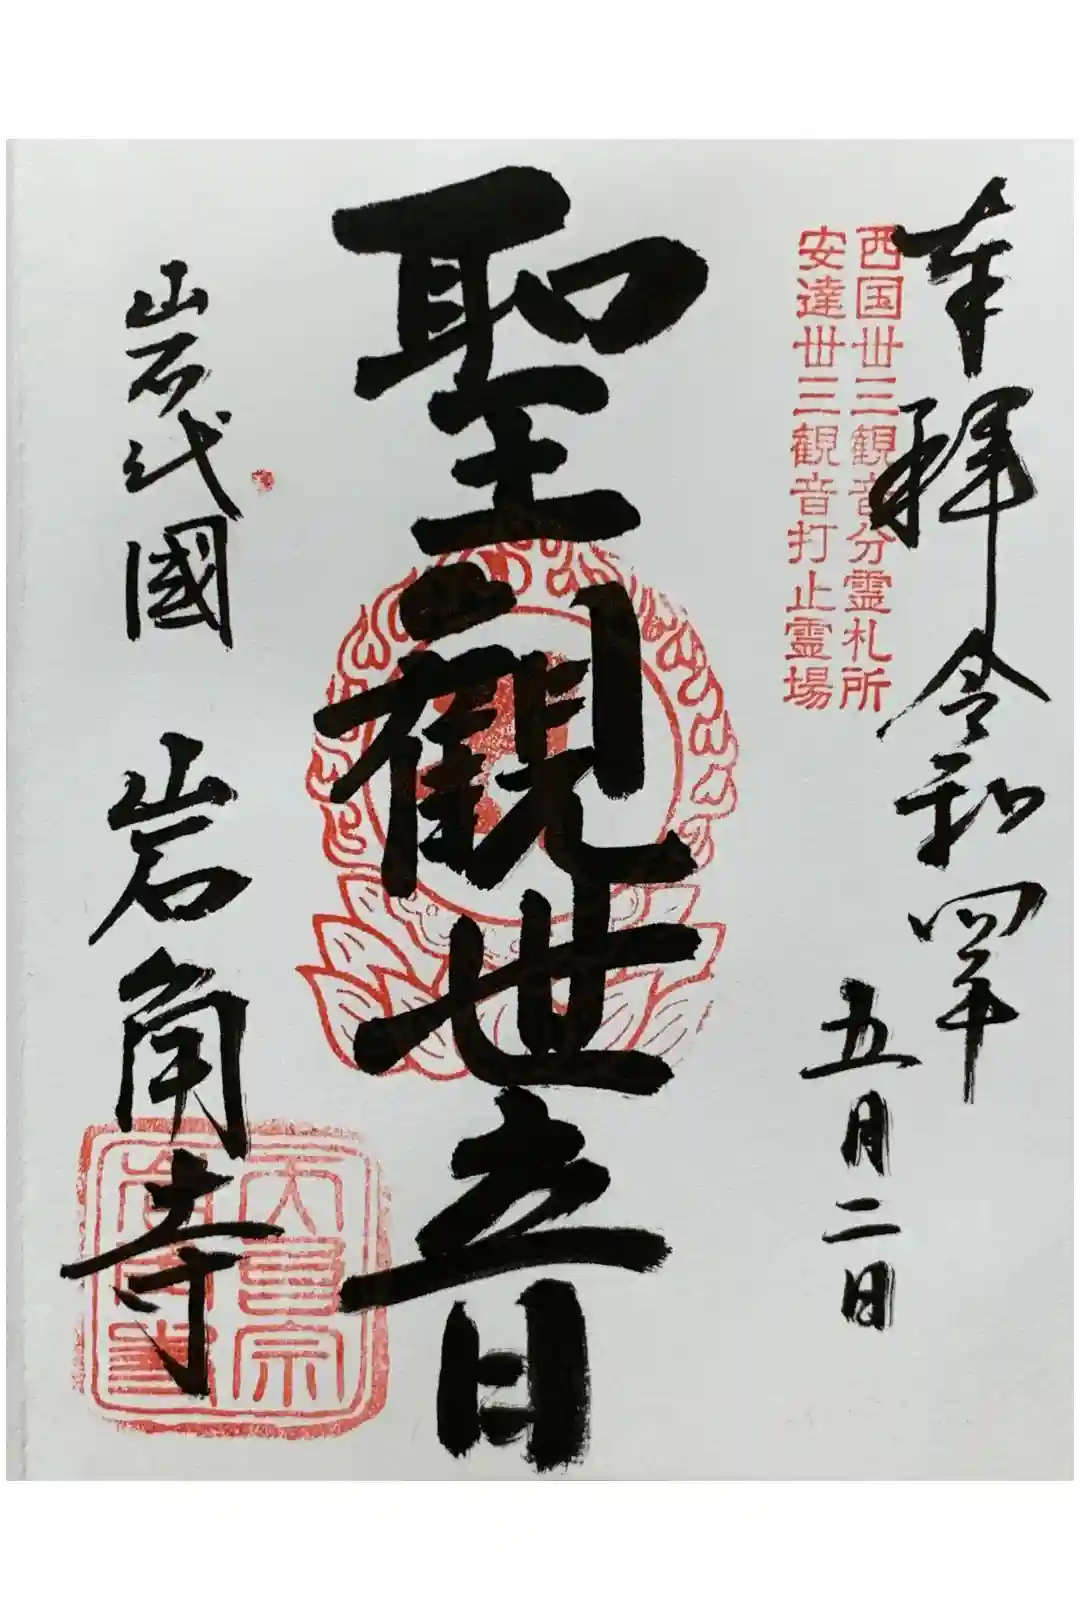 奉拝 令和四年
五月二日
西国丗三観音分霊札所
安達丗三観音打止霊場
聖観世音
岩代國 岩角寺
天台宗